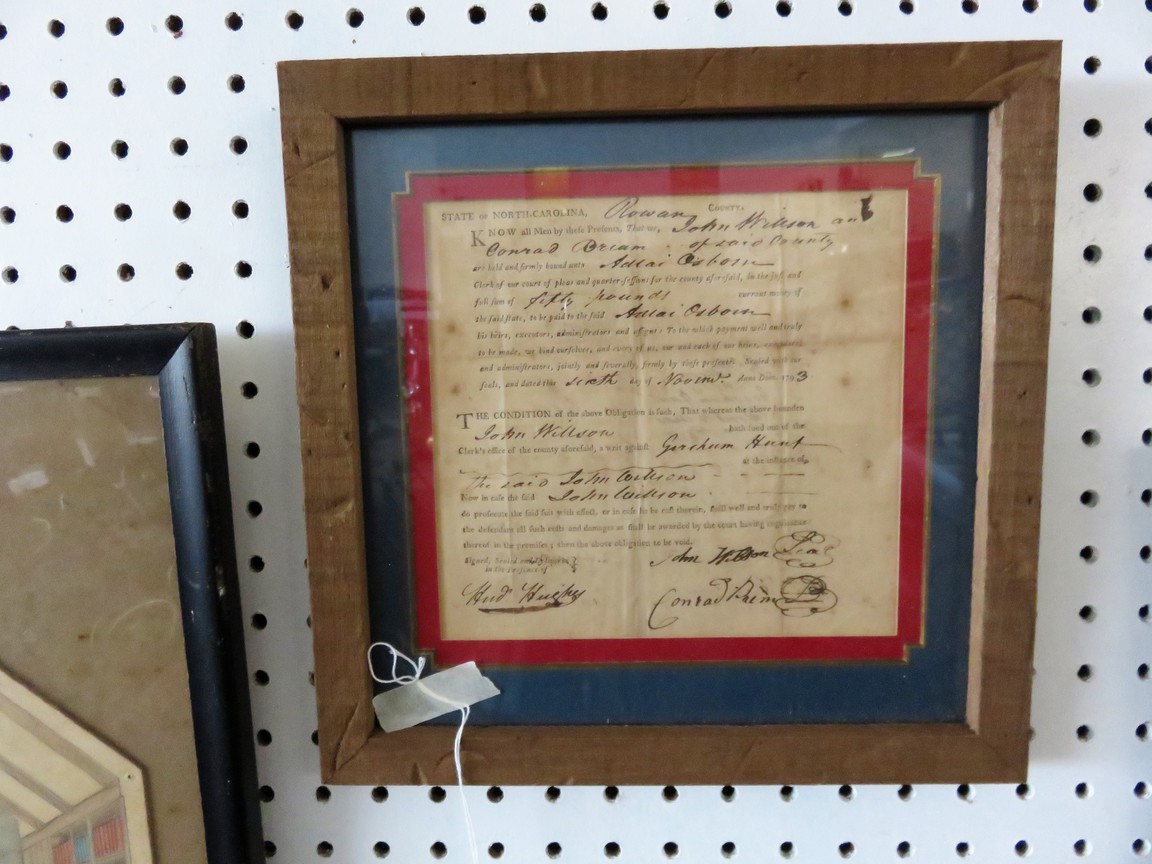 STATE OF NORTH-CAROLINA, Rowan COUNTY.
KNOW all Men by theſe Preſents, That we, John Willson and
Conrad Bream of said County
are held and firmly bound unto Adlai Osborn
Clerk of our court of pleas and quarter-ſeſſions for the county aforeſaid, in the juſt and
full ſum of fifty pounds current money of
the ſaid ſtate, to be paid to the ſaid Adlai Osborn
his heirs, executors, adminiſtrators and aſſigns: To the which payment well and truly
to be made, we bind ourſelves, and every of us, our and each of our heirs, executors
and adminiſtrators, jointly and ſeverally, firmly by theſe preſents. Sealed with our
ſeals, and dated this sixth day of Novemr. Anno Dom. 1793
THE CONDITION of the above Obligation is ſuch, That whereas the above bounden
John Willson hath ſued out of the
Clerk's office of the county aforeſaid, a writ againſt Gersham Hunt
at the inſtance of
the said John Willson
Now in caſe the ſaid John Willson
do proſecute the ſaid ſuit with effect, or in caſe he be caſt therein, ſhall well and truly pay to
the defendant all ſuch coſts and damages as ſhall be awarded by the court having cognizance
thereof in the premiſes; then the above obligation to be void.
Signed, Sealed and Delivered
in the Preſence of
John Willson Seal
Hud Hughes
Conrad